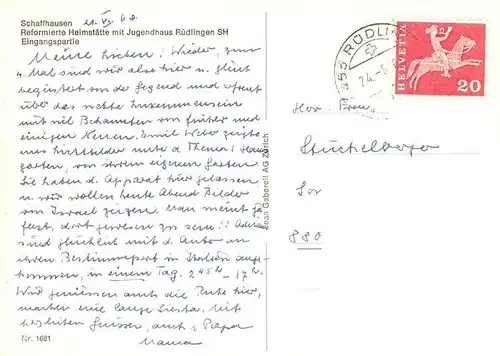 Schaffhausen 21. VI 68
Reformierte Heimstätte mit Jugendhaus Rüdlingen SH
Eingangspartie
Meine Lieben! Wieder, zum
4. Mal sind wir also hier u. gleich
begeistert von der Gegend und erfreut
über das nette Zusammensein
mit Bekannten von früher und
einigen Neuen. Emil Weber zeigte
uns Lichtbilder unter d. Thema:
garten, von ihrem eigenen Garten
Sie haben d. Apparat hier gelassen
u. wir wollen heute Abend Bilder
von Israel zeigen. Man meint
fast, dort gewesen zu sein!!
sind glücklich mit d. Auto an
ihrem Bestimmungsort in Italien ange-
kommen, in einem Tag. 2 45 h - 17 h.
Wir geniessen auch die Ruhe hier,
machen eine lange Siesta. Mit
herzlichen Grüssen, auch v. Papa
Mama
Nr. 1681
Jean Gaberell AG Zürich
8455 RÜDLIN
24.-6.
HELVETIA
20
Herrn Fam.
Stückelberger
880